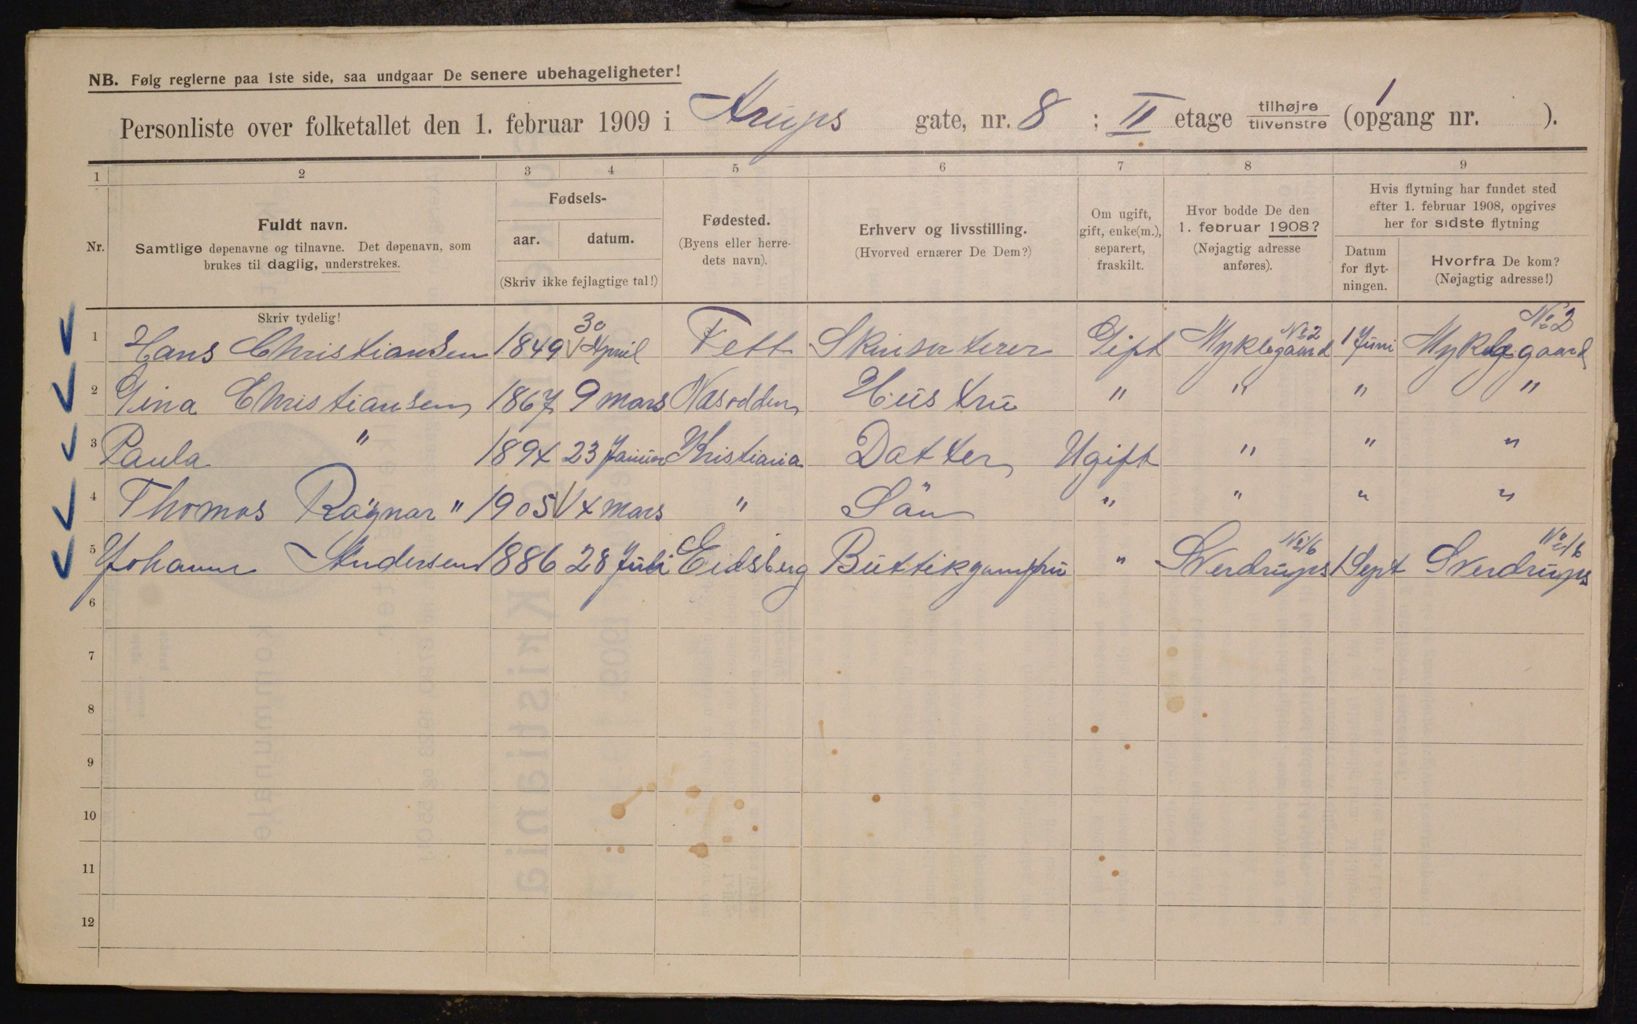 NB. Følg reglerne paa 1ste side, saa undgaar De senere ubehageligheter!
Personliste over folketallet den 1. februar 1909 i Arups gate, nr. 8 ; II etage tilhøjre tilvenstre (opgang nr. 1 ).
1 2 3 4 5 6 7 8 9
Nr.
Fuldt navn.
Samtlige døpenavne og tilnavne. Det døpenavn, som
brukes til daglig, understrekes.
Skriv tydelig!
Fødsels-
aar. datum.
(Skriv ikke fejlagtige tal!)
Fødested.
(Byens eller herre-
dets navn).
Erhverv og livsstilling.
(Hvorved ernærer De Dem?)
Om ugift,
gift, enke(m.),
separert,
fraskilt.
Hvor bodde De den
1. februar 1908?
(Nøjagtig adresse
anføres).
Hvis flytning har fundet sted
efter 1. februar 1908, opgives
her for sidste flytning
Datum
for flyt-
ningen.
Hvorfra De kom?
(Nøjagtig adresse!)
1 Hans Christiansen 1849 30 April Fett Gift Myklegaard No 2 1 Juni Myklegaard No 2
2 Gina Christiansen 1867 9 mars Nasodden Hustru " " " "
3 Paula " 1894 23 Januar Kristiania Datter Ugift " " "
4 Thomas Ragnar " 1905 14 mars " Sön " " " "
5 Johanne Andersen 1886 28 Juli Eidsberg Buttikjomfru " Sverdrups No 16 1 Sept Sverdrups No 16
6
7
8
9
10
11
12